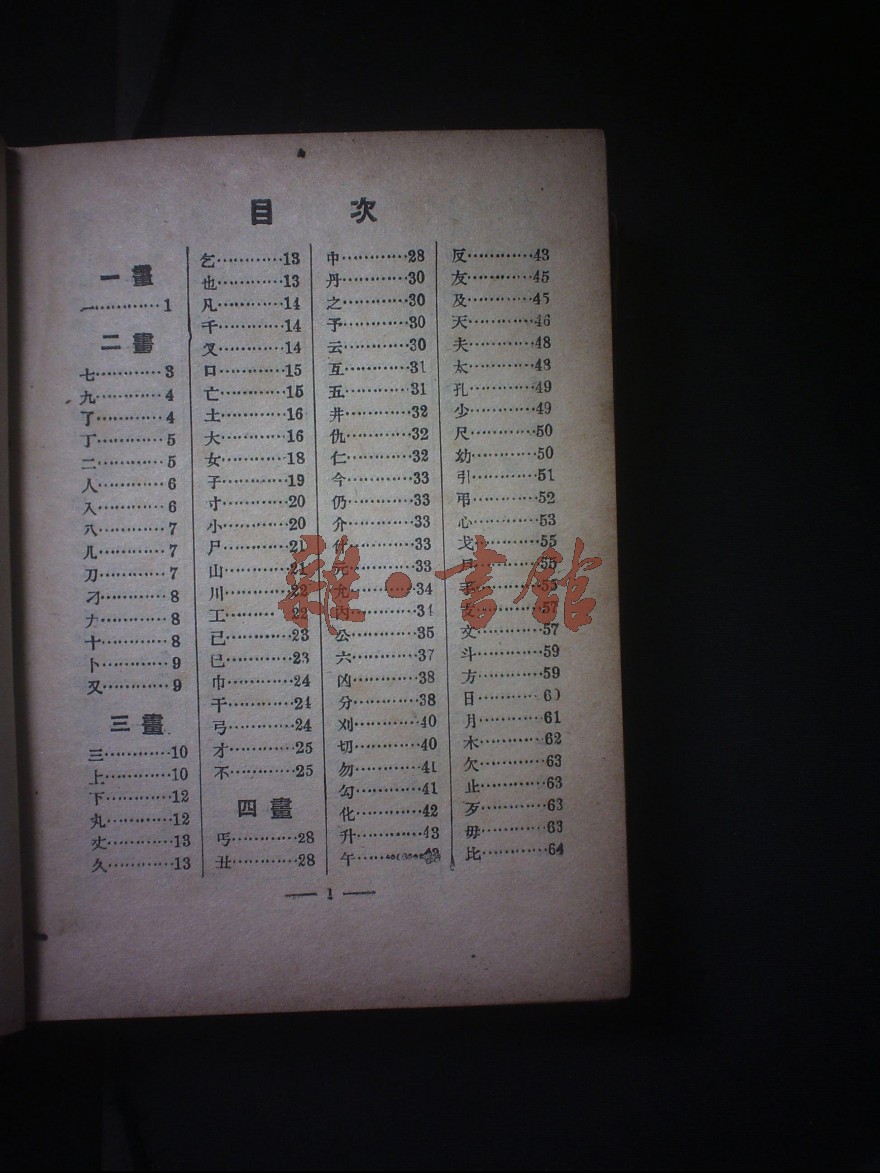 目 次
一畫
一…………1
二畫
七…………3
九…………4
了…………4
丁…………5
二…………5
人…………6
入…………6
八…………7
儿…………7
刀…………7
刁…………8
十…………8
卜…………9
又…………9
三畫
三…………10
上…………10
下…………12
丸…………12
丈…………13
久…………13
乞…………13
也…………13
凡…………14
千…………14
叉…………14
口…………15
亡…………15
土…………16
大…………16
女…………18
子…………19
寸…………20
小…………20
尸…………21
山…………21
川…………22
工…………22
己…………23
巳…………23
巾…………24
干…………24
弓…………24
才…………25
不…………25
四畫
丐…………28
丑…………28
中…………28
丹…………30
之…………30
予…………30
云…………30
互…………31
五…………31
井…………32
仇…………32
仁…………32
今…………33
仍…………33
介…………33
什…………33
元…………33
允…………34
內…………34
公…………35
六…………37
凶…………38
分…………38
刈…………40
切…………40
勿…………41
勾…………41
化…………42
升…………43
午…………
反…………43
友…………45
及…………45
天…………46
夫…………48
太…………48
孔…………49
少…………49
尺…………50
幼…………50
引…………51
弔…………52
心…………53
戈…………55
…………55
手…………55
…………57
文…………57
斗…………59
方…………59
日…………60
月…………61
木…………62
欠…………63
止…………63
歹…………63
毋…………63
比…………64
— 1 —
雜·書館